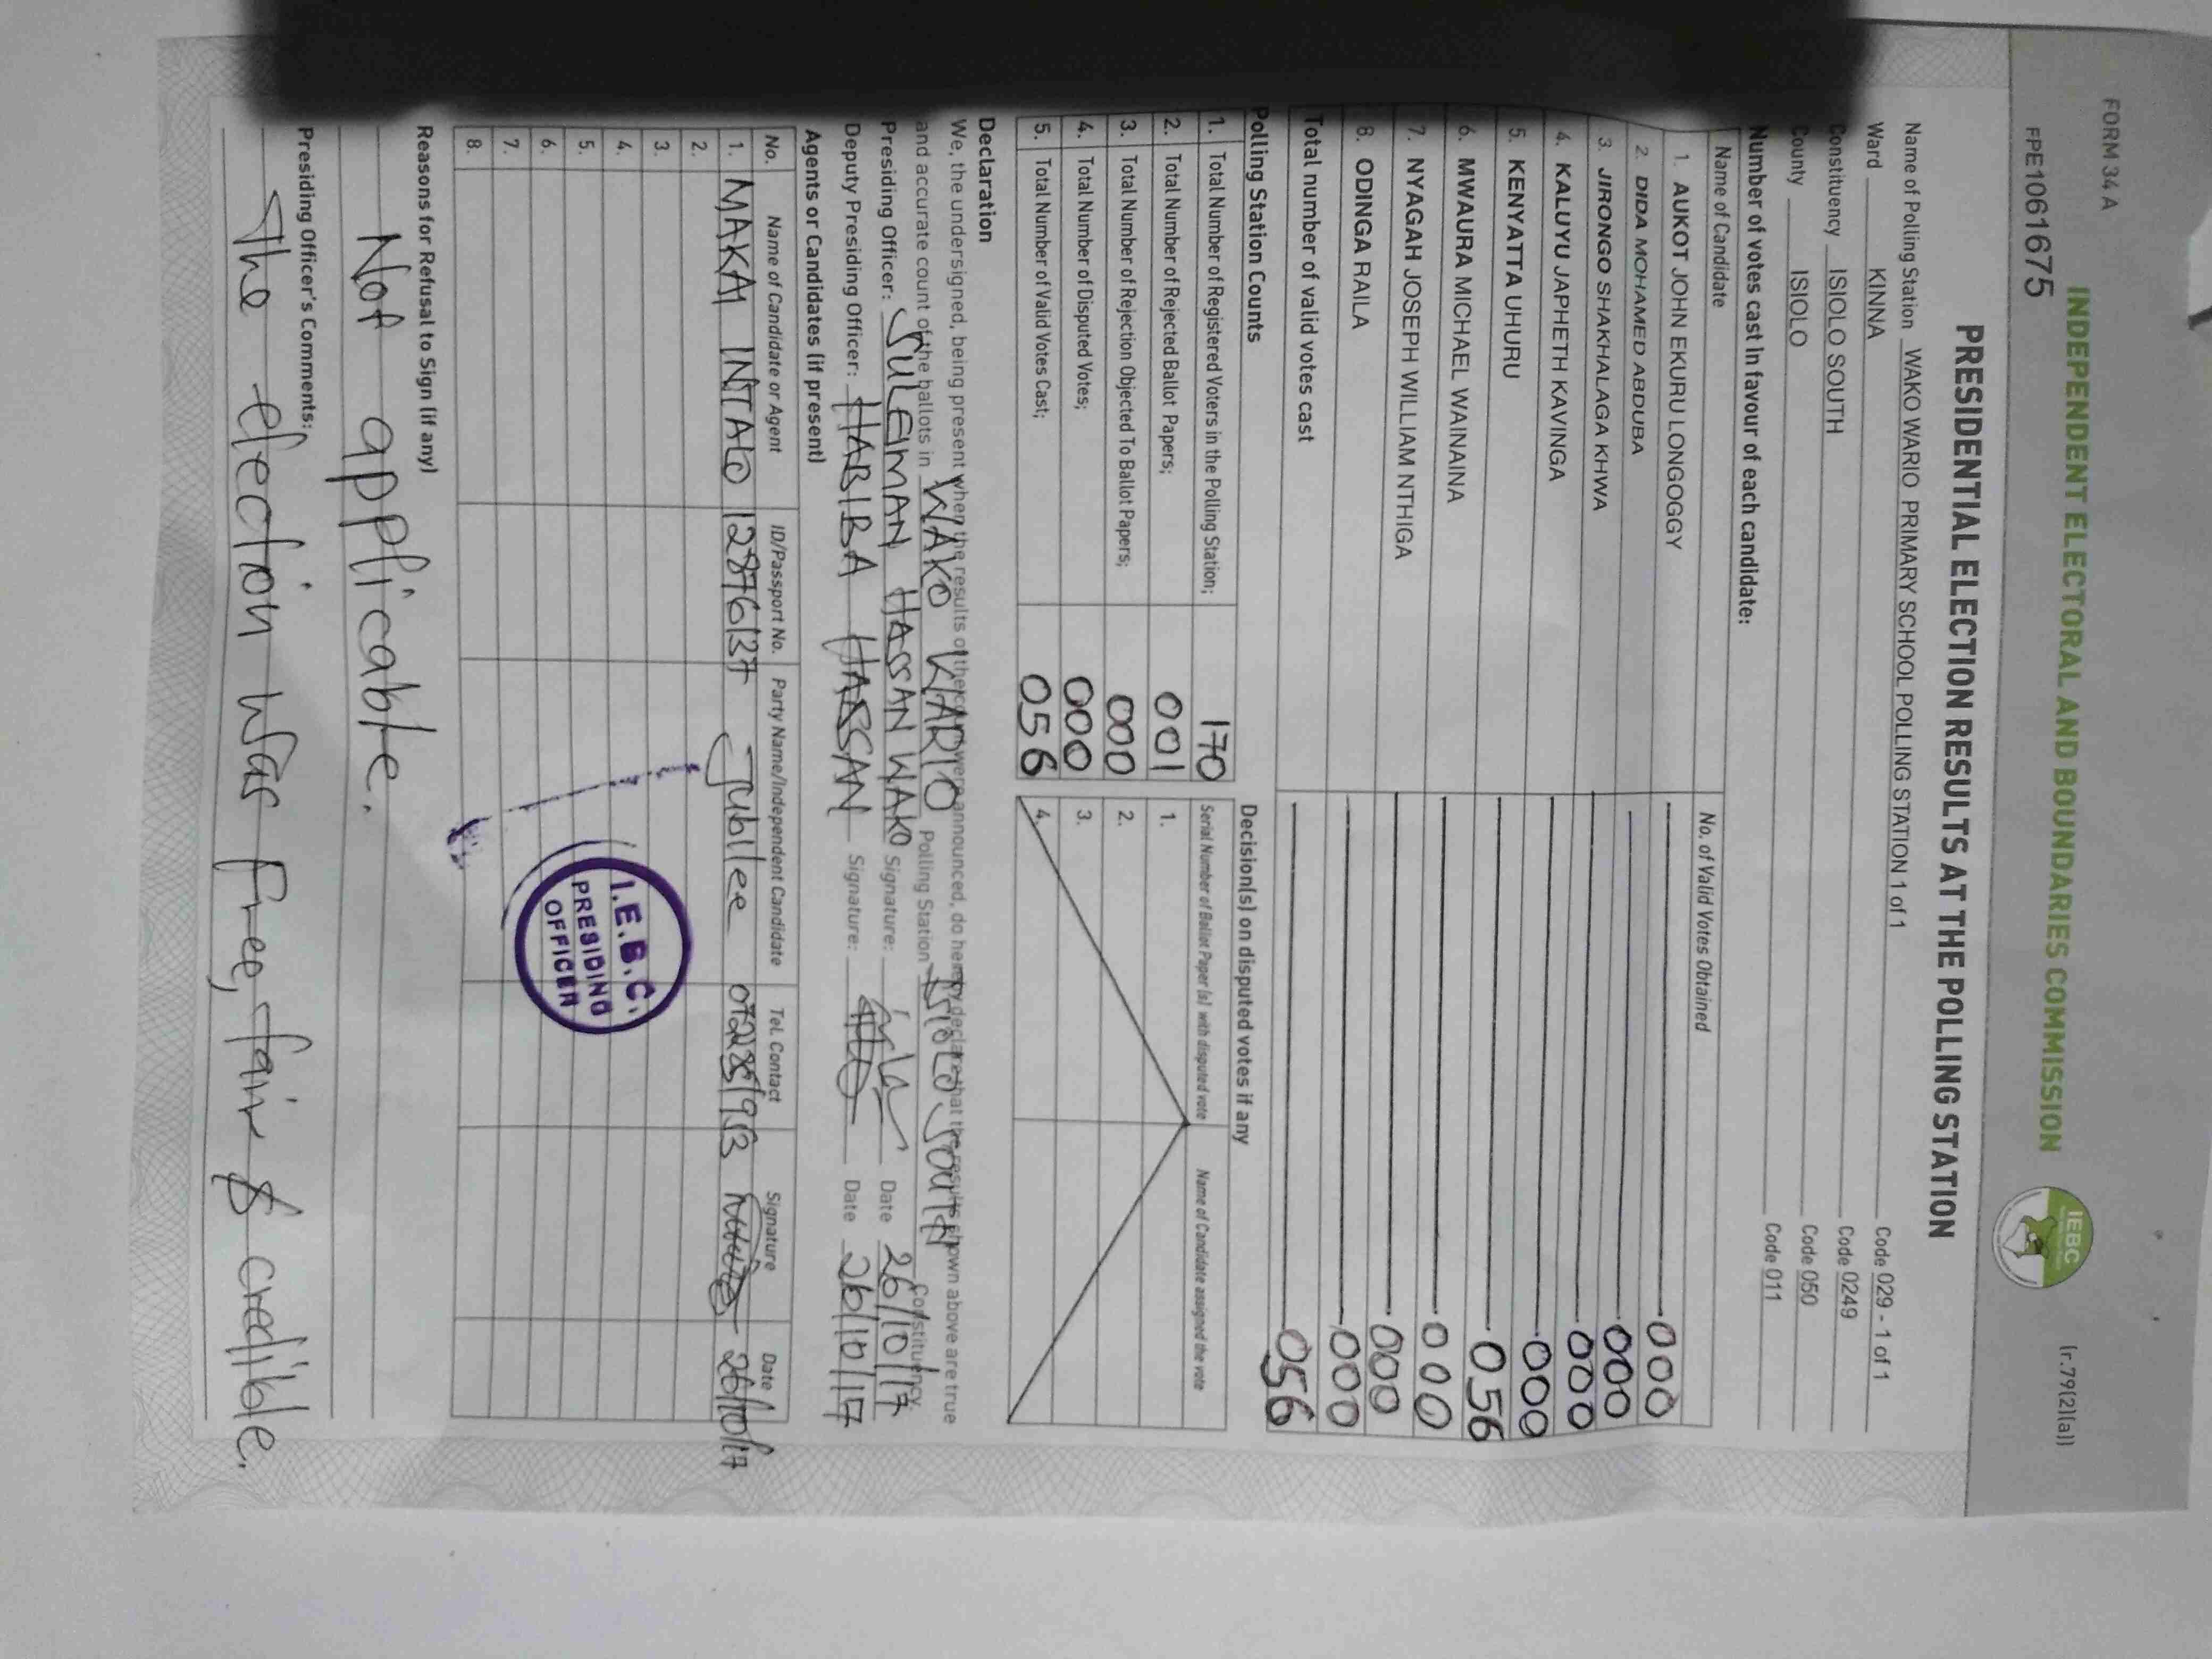 FORM 34 A
(r.79(2)(a))
INDEPENDENT ELECTORAL AND BOUNDARIES COMMISSION
IEBC
FPE1061675
PRESIDENTIAL ELECTION RESULTS AT THE POLLING STATION
Name of Polling Station WAKO WARIO PRIMARY SCHOOL POLLING STATION 1 of 1 Code 029 - 1 of 1
Ward KINNA Code 0249
Constituency ISIOLO SOUTH Code 050
County ISIOLO Code 011
Number of votes cast in favour of each candidate:
Name of Candidate No. of Valid Votes Obtained
1. AUKOT JOHN EKURU LONGOGGY 000
2. DIDA MOHAMED ABDUBA 000
3. JIRONGO SHAKHALAGA KHWA 000
4. KALUYU JAPHETH KAVINGA 000
5. KENYATTA UHURU 056
6. MWAURA MICHAEL WAINAINA 000
7. NYAGAH JOSEPH WILLIAM NTHIGA 000
8. ODINGA RAILA 000
Total number of valid votes cast 056
Polling Station Counts
1. Total Number of Registered Voters in the Polling Station; 170
2. Total Number of Rejected Ballot Papers; 001
3. Total Number of Rejection Objected To Ballot Papers; 000
4. Total Number of Disputed Votes; 000
5. Total Number of Valid Votes Cast; 056
Decision(s) on disputed votes if any
Serial Number of Ballot Paper (s) with disputed vote Name of Candidate assigned the vote
1.
2.
3.
4.
Declaration
We, the undersigned, being present when the results of the count were announced, do hereby declare that the results shown above are true
and accurate count of the ballots in WAKO WARIO Polling Station ISIOLO SOUTH Constituency.
Presiding Officer: SULEIMAN HASSAN WAKO Signature: Date 26/10/17
Deputy Presiding Officer: HABIBA HASSAN Signature: Date 26/10/17
Agents or Candidates (if present)
No. Name of Candidate or Agent ID/Passport No. Party Name/Independent Candidate Tel. Contact Signature Date
1. MAKAI INTALO 12876137 Jubilee 26/10/17
2.
3.
4.
5.
6.
7.
8.
I.E.B.C.
PRESIDING
OFFICER
Reasons for Refusal to Sign (if any)
Not applicable.
Presiding Officer's Comments:
The election was free, fair & credible.